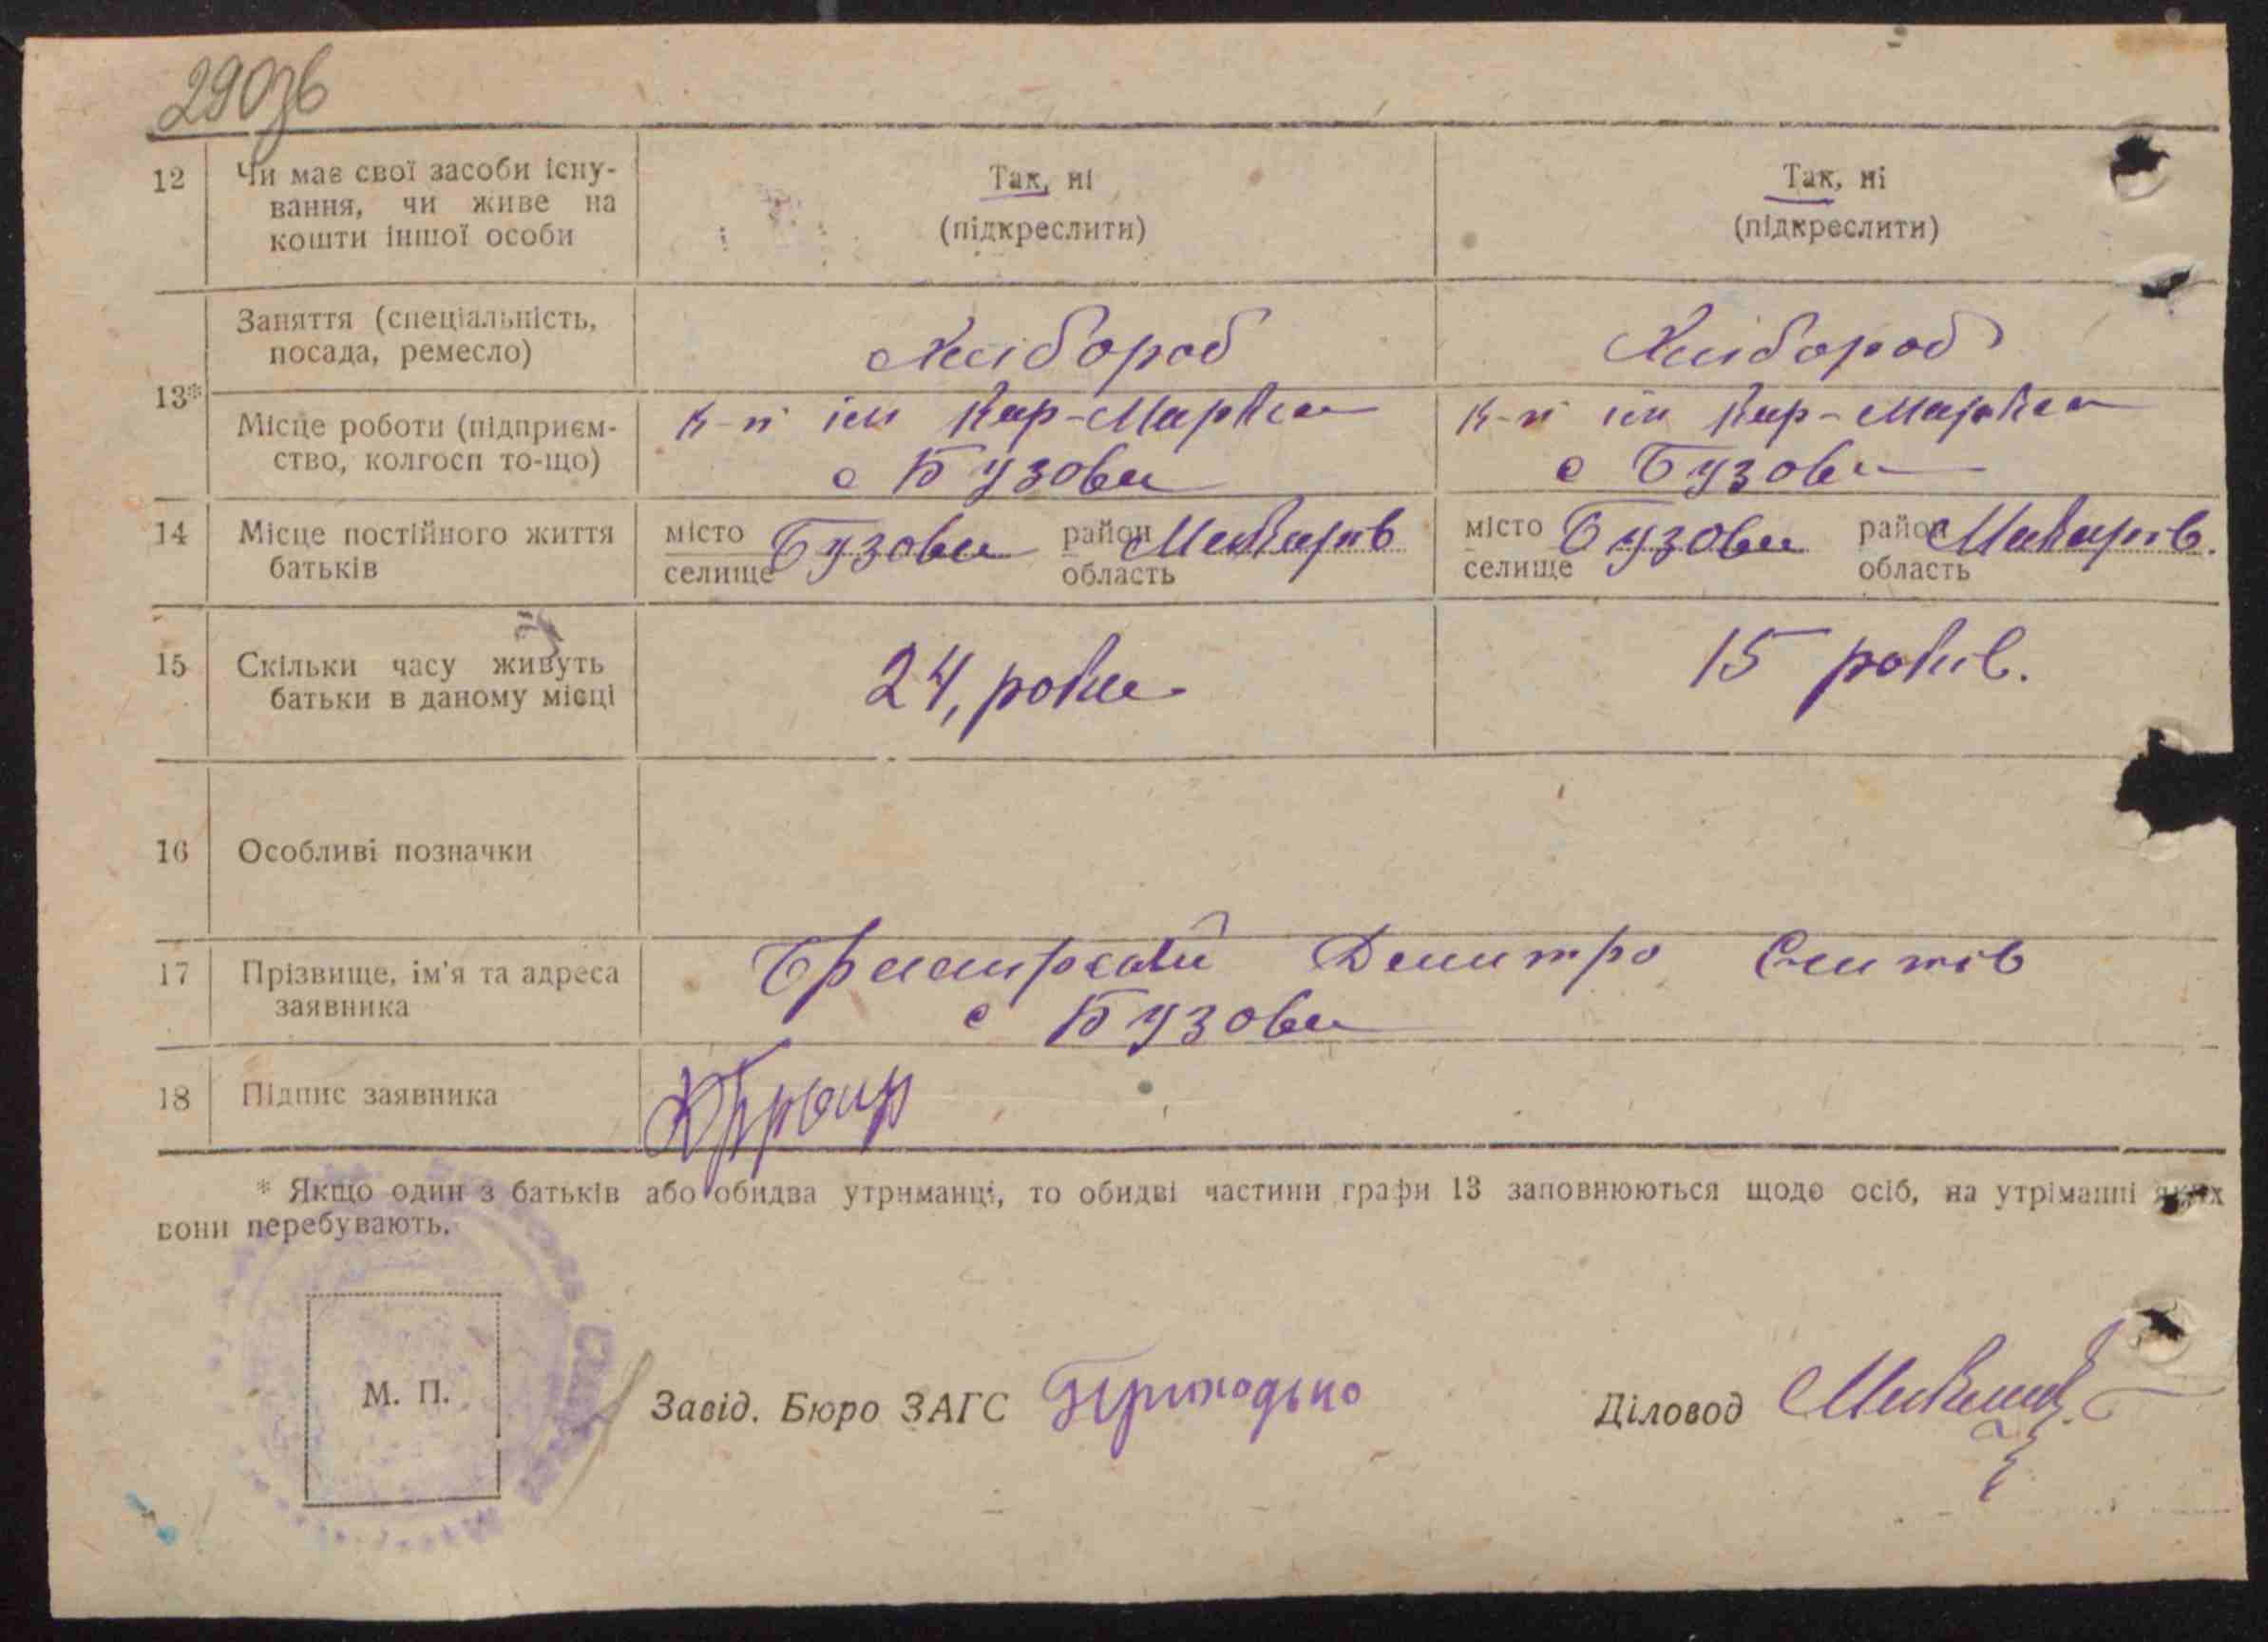 290зв
12 Чи має свої засоби існу-
вання, чи живе на
кошти іншої особи
Так, ні
(підкреслити)
Так, ні
(підкреслити)
13*
Заняття (спеціальність,
посада, ремесло)
Хлібороб
Хлібороб
Місце роботи (підприєм-
ство, колгосп то-що)
к-п ім Кар-Маркса
с Бузова
к-п ім Кар-Маркса
с Бузова
14 Місце постійного життя
батьків
місто Бузова район Макарів
селище область
місто Бузова район Макарів.
селище область
15 Скільки часу живуть
батьки в даному місці
24, роки
15 років.
16 Особливі позначки
17 Прізвище, ім'я та адреса
заявника
Дмитро
с Бузова
18 Підпис заявника
* Якщо один з батьків або обидва утриманці, то обидві частини графи 13 заповнюються щодо осіб, на утріманні яких
вони перебувають.
М. П.
Завід. Бюро ЗАГС Приходько
Діловод